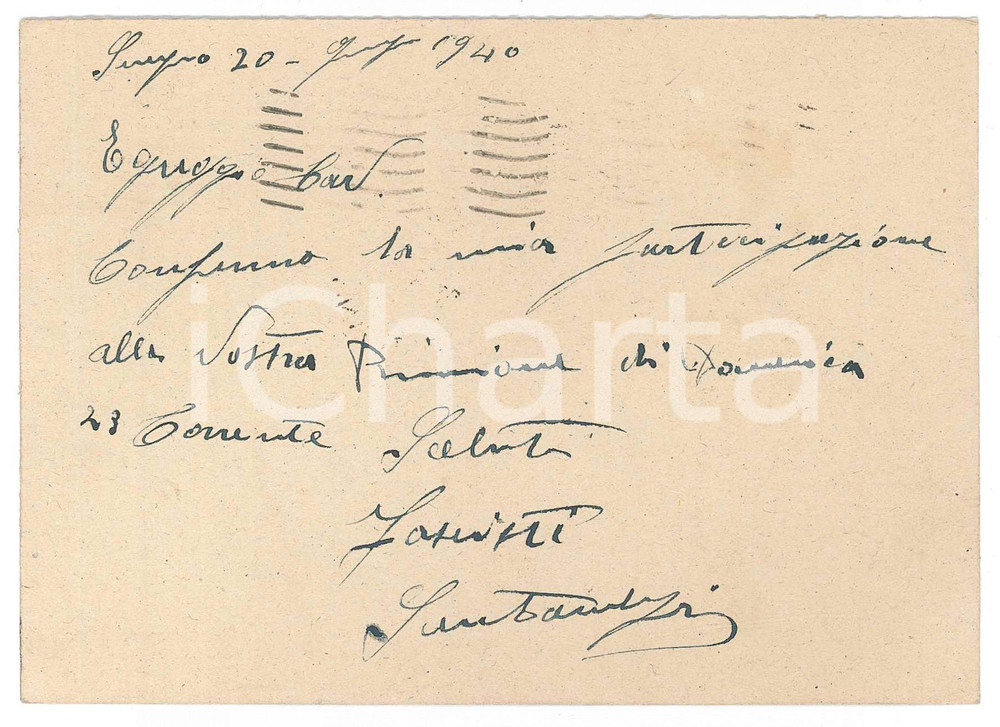 20 - 1940
Egregio Cav.
Confermo la mia partecipazione
alla Vostra Riunione di Domenica
23 Corrente
Saluti
Fascisti
iCharta